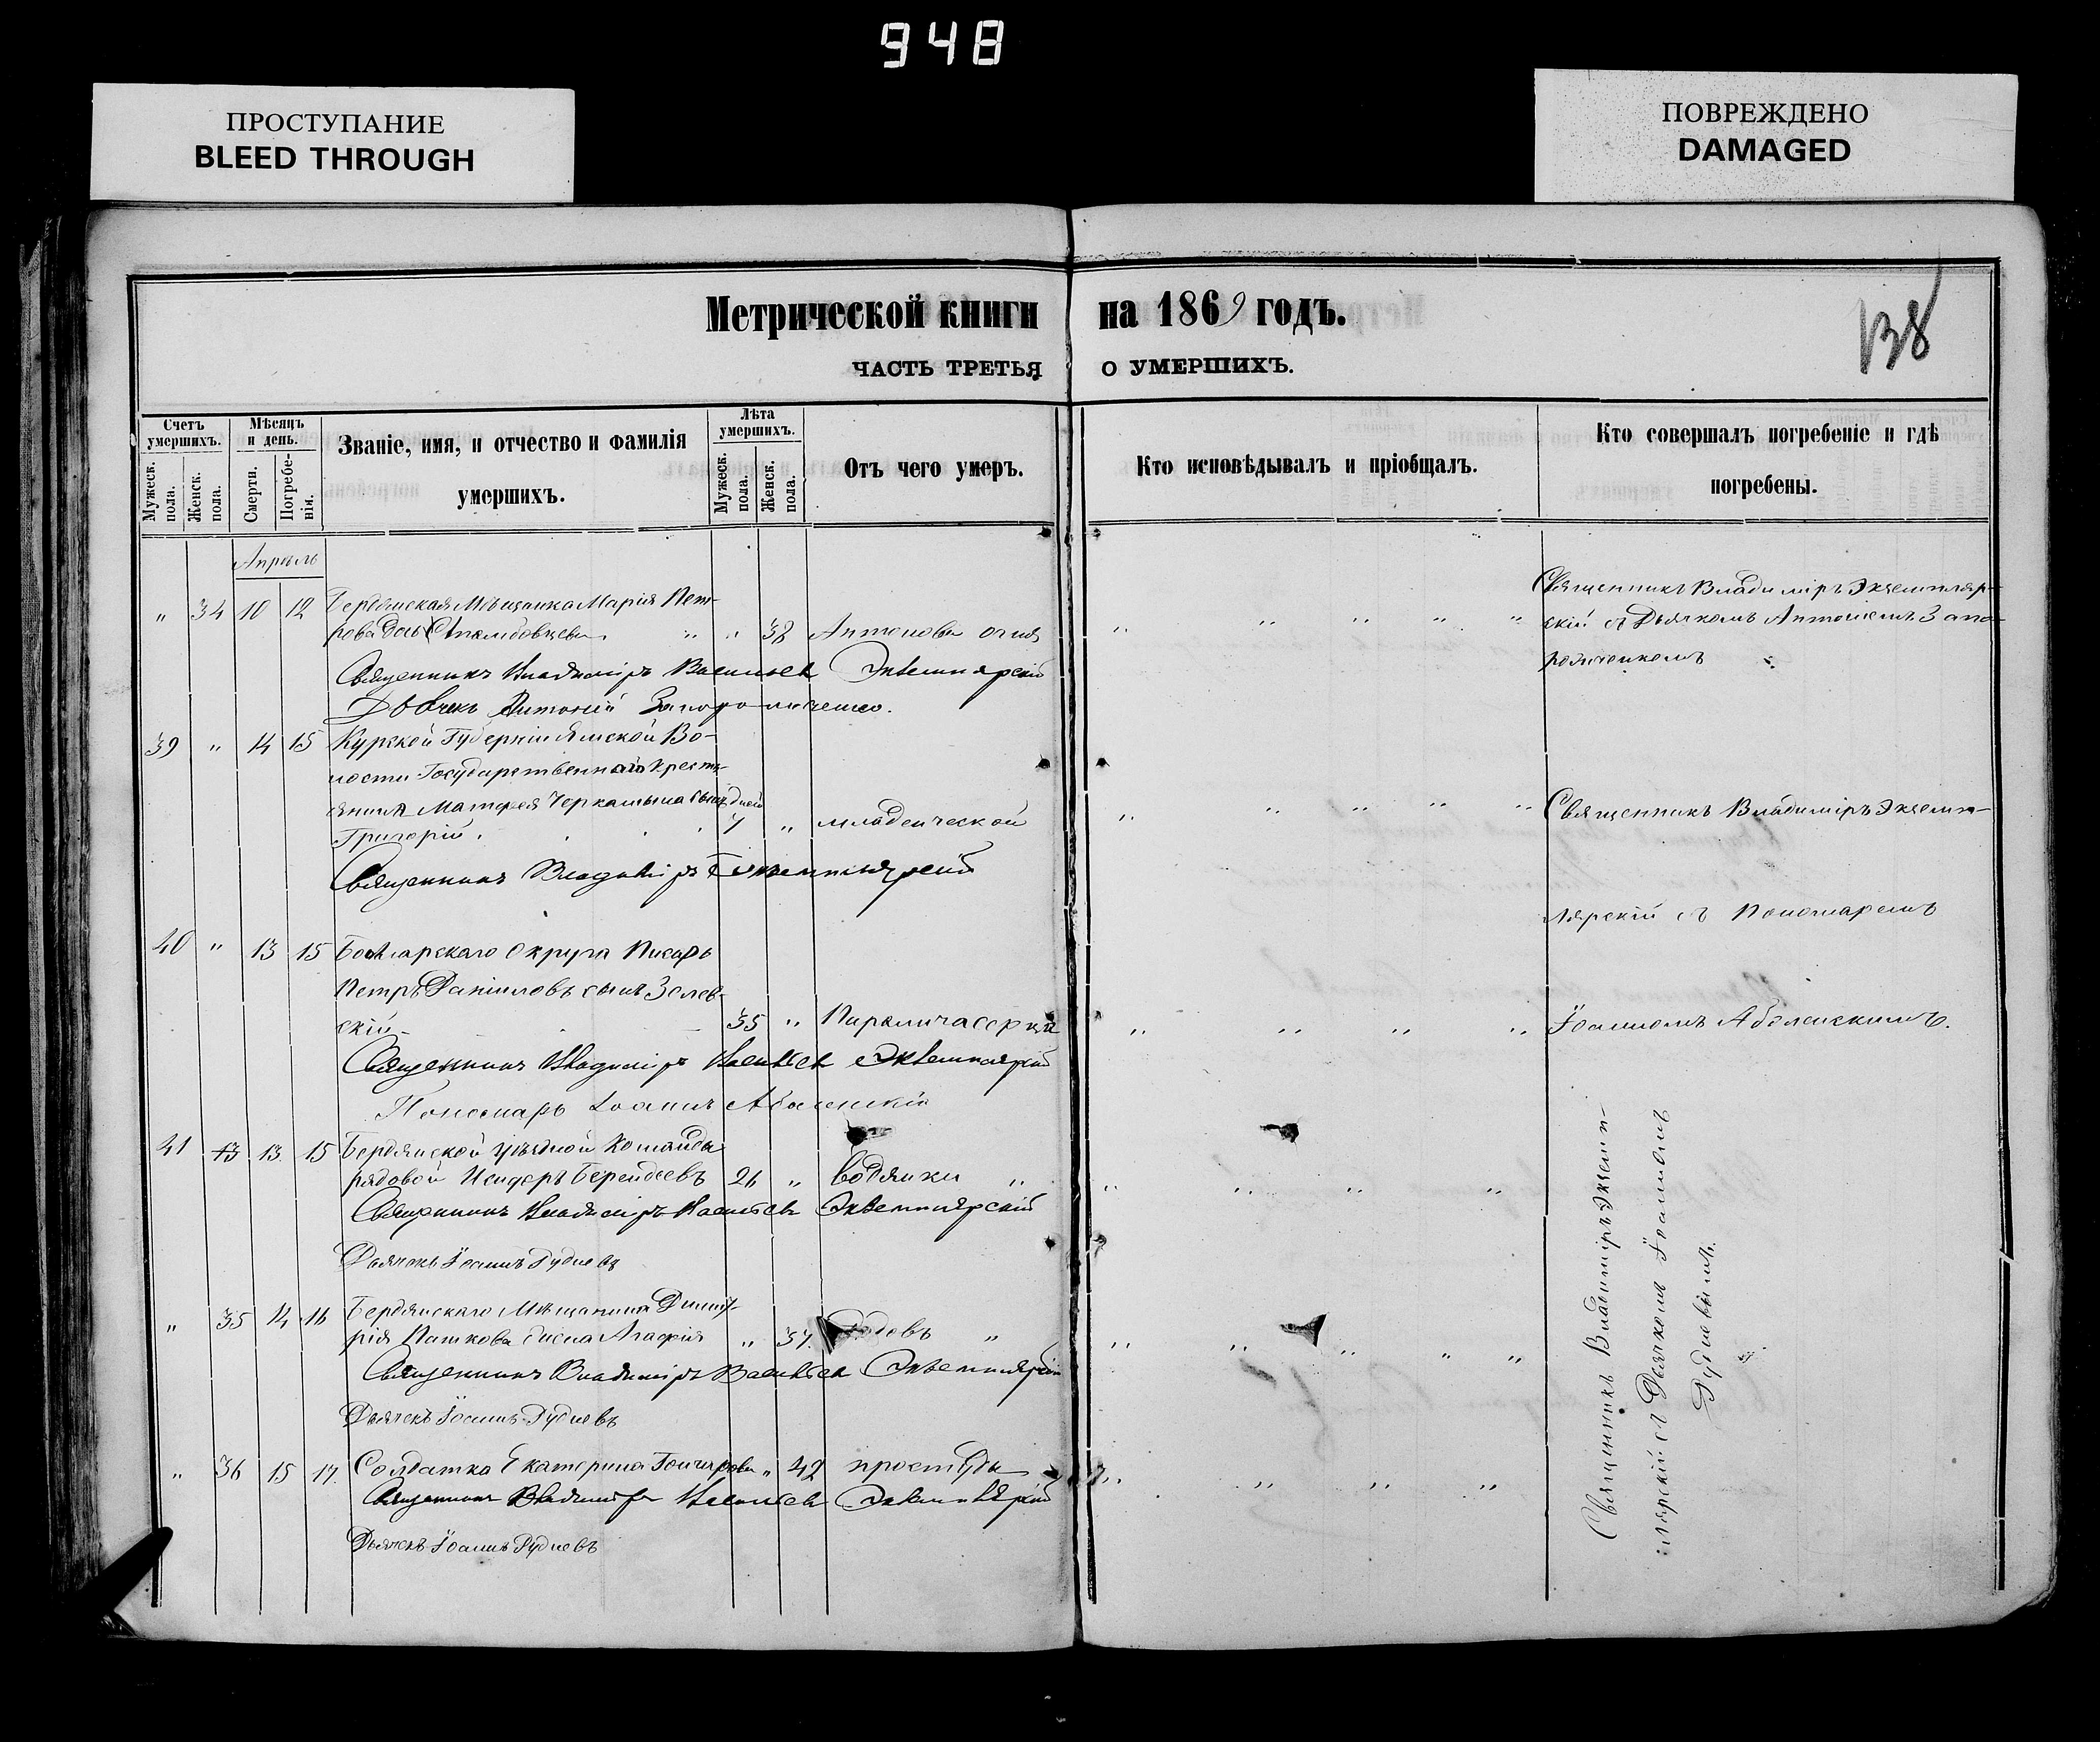 948
ПРОСТУПАНИЕ
BLEED THROUGH
ПОВРЕЖДЕНО
DAMAGED
Метрической книги на 1869 годъ.
138
ЧАСТЬ ТРЕТЬЯ О УМЕРШИХЪ.
Счетъ умершихъ.
Мужеск. пола.
Женск. пола.
Мѣсяцъ и день.
Смерти.
Погребенія.
Званіе, имя, и отчество и фамилія
умершихъ.
Лѣта умершихъ.
Мужеск. пола.
Женск. пола.
Отъ чего умеръ.
Кто исповѣдывалъ и пріобщалъ.
Кто совершалъ погребеніе и гдѣ
погребены.
Апрѣль
„ 34 10 12 Бердянская Мѣщанка Марія Пет-
рова дочь „ „ 38 Антонова огня
Священникъ Владиміръ Васильевъ Экземплярскій
Дьячекъ Антоній Запорожченко.
Священникъ Владиміръ Экземпляр-
скій съ Дьячкомъ Антоніемъ Запо-
рожченкомъ
39 „ 14 15 Курской Губерніи Ямской Во-
лости Государственнаго Кресть-
янина Матфея Черкашина сынъ дней
Григорій. 7 „ младенческой
Священникъ Владиміръ Экземплярскій
Священникъ Владиміръ Экземп-
лярскій съ Пономаремъ
Іоанномъ Аболенскимъ.
40 „ 13 15 Болгарскаго Округа Писарь
Петръ Даніиловъ сынъ Зелев-
скій 35 „
Священникъ Владиміръ Васильевъ Экземплярскій
Пономарь Іоаннъ Аболенскій
41 13 13 15 Бердянской уѣздной Команды
рядовой Берендѣевъ 26 „ водянки „
Священникъ Владиміръ Васильевъ Экземплярскій
Дьячекъ Іоаннъ Рудневъ
„ 35 14 16 Бердянскаго Мѣщанина Димит-
рія Паткова жена Агафія „ 37. Родовъ „
Священникъ Владиміръ Васильевъ Экземплярскій
Дьячекъ Іоаннъ Рудневъ
„ 36 15 17. Солдатка Екатерина Гончарова „ 42 простуды
Священникъ Владиміръ Васильевъ Экземплярскій
Дьячекъ Іоаннъ Рудневъ
Священникъ Владиміръ Экземп-
лярскій съ Дьячкомъ Іоанномъ
Рудневымъ.